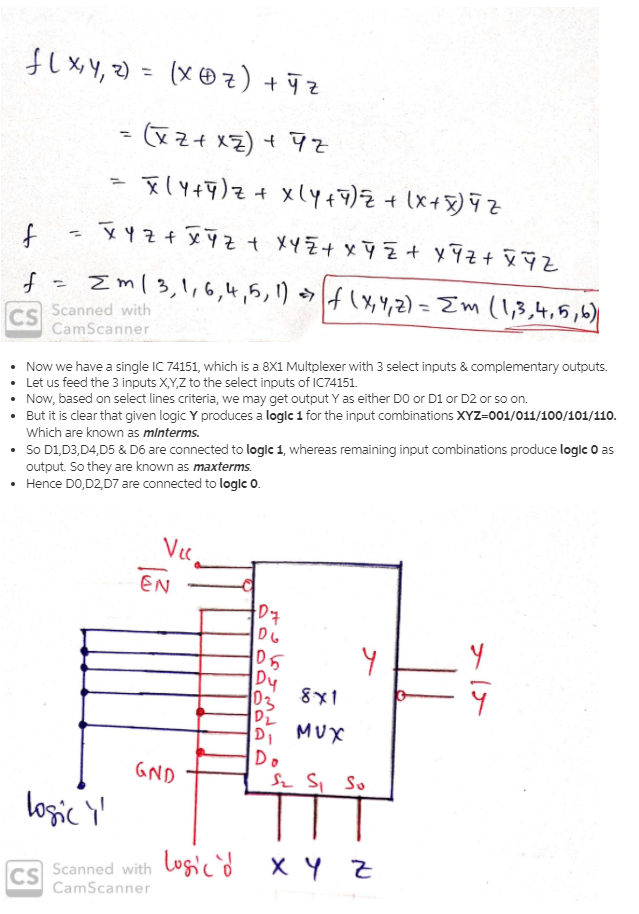 f(x,y,z) = (x⊕z) + y̅z
= (x̅z + xz̅) + y̅z
= x̅(y+y̅)z + x(y+y̅)z̅ + (x+x̅)y̅z
f = x̅yz + x̅y̅z + xyz̅ + xy̅z̅ + xy̅z + x̅y̅z
f = Σm(3,1,6,4,5,1) ⇒ f(x,y,z) = Σm(1,3,4,5,6)
CS Scanned with
CamScanner
• Now we have a single IC 74151, which is a 8X1 Multplexer with 3 select inputs & complementary outputs.
• Let us feed the 3 inputs X,Y,Z to the select inputs of IC74151.
• Now, based on select lines criteria, we may get output Y as either D0 or D1 or D2 or so on.
• But it is clear that given logic Y produces a logic 1 for the input combinations XYZ=001/011/100/101/110.
Which are known as minterms.
• So D1,D3,D4,D5 & D6 are connected to logic 1, whereas remaining input combinations produce logic 0 as
output. So they are known as maxterms.
• Hence D0,D2,D7 are connected to logic 0.
Vcc
E̅N̅
D7
D6
D5
Y
Y
D4
D3
8x1
Y̅
D2
D1
MUX
D0
GND
S2 S1 S0
logic '1'
logic '0'
X Y Z
CS Scanned with
CamScanner